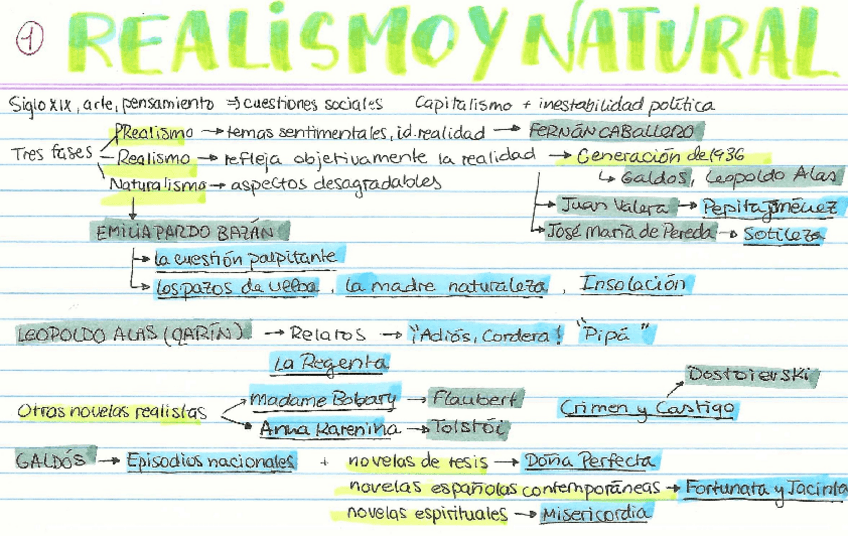 1 REALISMO Y NATURAL
Siglo XIX, arte, pensamiento ⇒ cuestiones sociales Capitalismo + inestabilidad política
Tres fases
PRealismo → temas sentimentales, id. realidad → FERNÁN CABALLERO
Realismo → refleja objetivamente la realidad → Generación de 1936
↳ Galdós, Leopoldo Alas
Naturalismo → aspectos desagradables
Juan Valera → Pepita Jiménez
José María de Pereda → Sotileza
EMILIA PARDO BAZÁN
→ la cuestión palpitante
→ los pazos de Ulloa, la madre naturaleza, Insolación
LEOPOLDO ALAS (CLARÍN) → Relatos → "¡Adiós, Cordera!" "Pipá"
La Regenta
Dostoievski
Otras novelas realistas
Madame Bobary → Flaubert
Crimen y Castigo
Anna Karenina → Tolstói
GALDÓS → Episodios nacionales + novelas de tesis → Doña Perfecta
novelas españolas contemporáneas → Fortunata y Jacinta
novelas espirituales → Misericordia